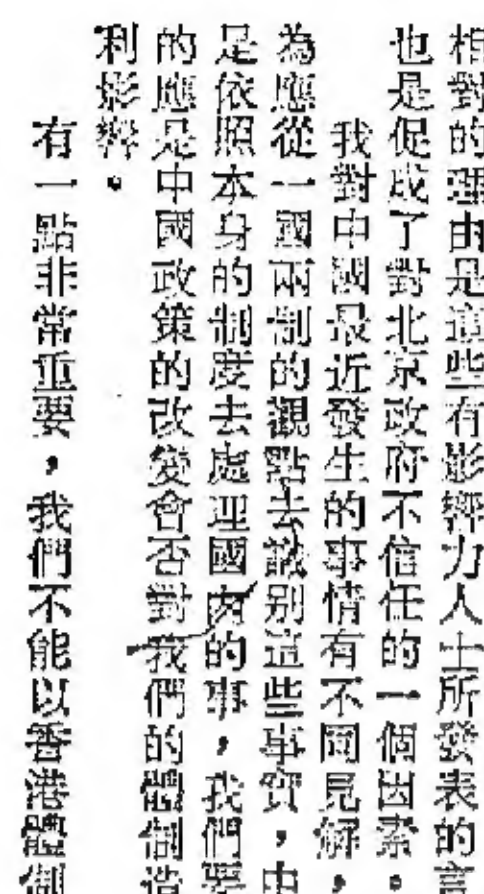 相對的理由是這些有影響力人士所發表的言
也是促成了對北京政府不信任的一個因素。
我對中國最近發生的事情有不同見解，
為應從一國兩制的觀點去識別這些事實，中
是依照本身的制度去處理國內的事，我們要
的應是中國政策的改變會否對我們的體制造
利影響。
有一點非常重要，我們不能以香港體制